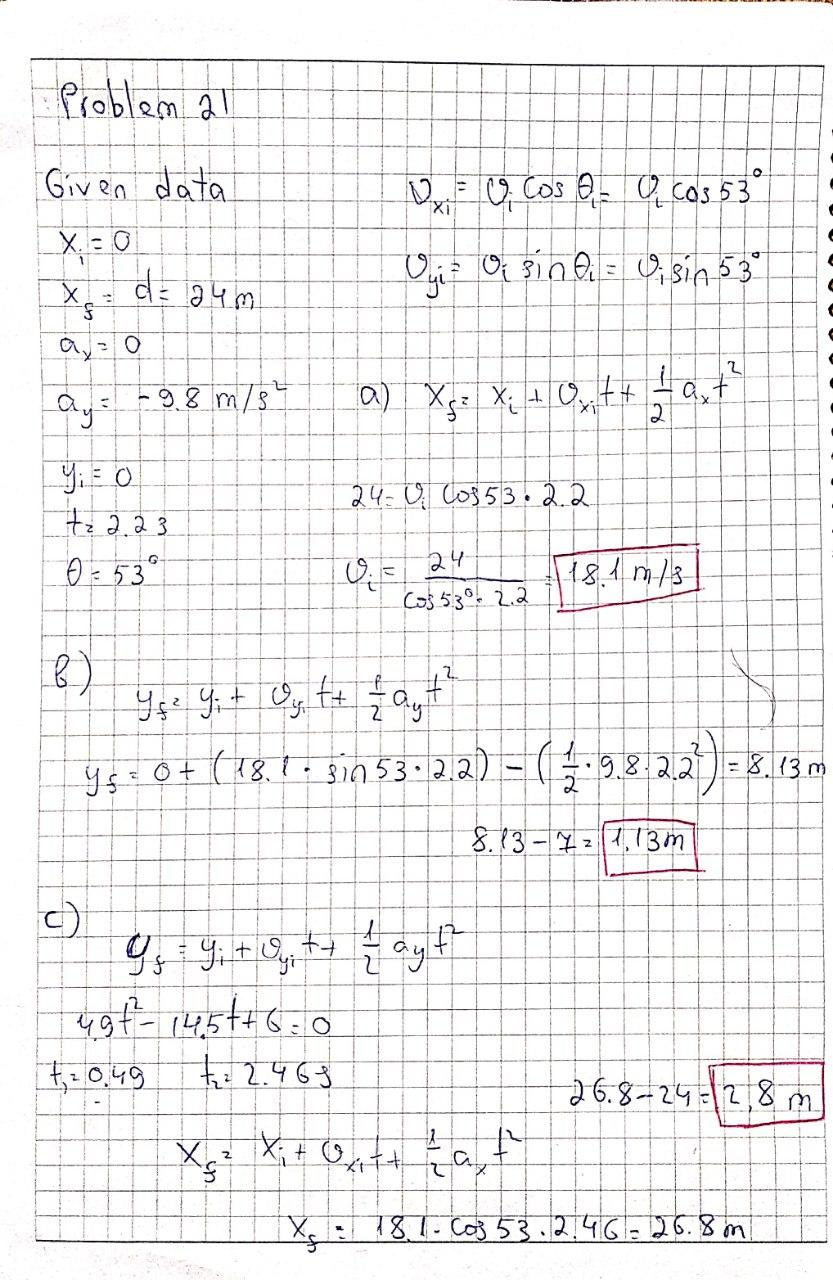 Problem 21
Given data
xᵢ = 0
x_f = d = 24 m
aₓ = 0
a_y = -9.8 m/s²
yᵢ = 0
t = 2.2 s
θ = 53°
v_xi = vᵢ cos θᵢ = vᵢ cos 53°
v_yi = vᵢ sin θᵢ = vᵢ sin 53°
a) x_f = xᵢ + v_xi t + 1/2 aₓt²
24 = vᵢ cos53 · 2.2
vᵢ = 24 / (cos53° · 2.2) = 18.1 m/s
b) y_f = yᵢ + v_yi t + 1/2 a_y t²
y_f = 0 + (18.1 · sin53 · 2.2) - (1/2 · 9.8 · 2.2²) = 8.13 m
8.13 - 7 = 1.13 m
c) y_f = yᵢ + v_yi t + 1/2 a_y t²
4.9t² - 14.5t + 6 = 0
t₁ = 0.49 t₂ = 2.46 s
26.8 - 24 = 2,8 m
x_f = xᵢ + v_xi t + 1/2 aₓt²
x_f = 18.1 · cos53 · 2.46 = 26.8 m